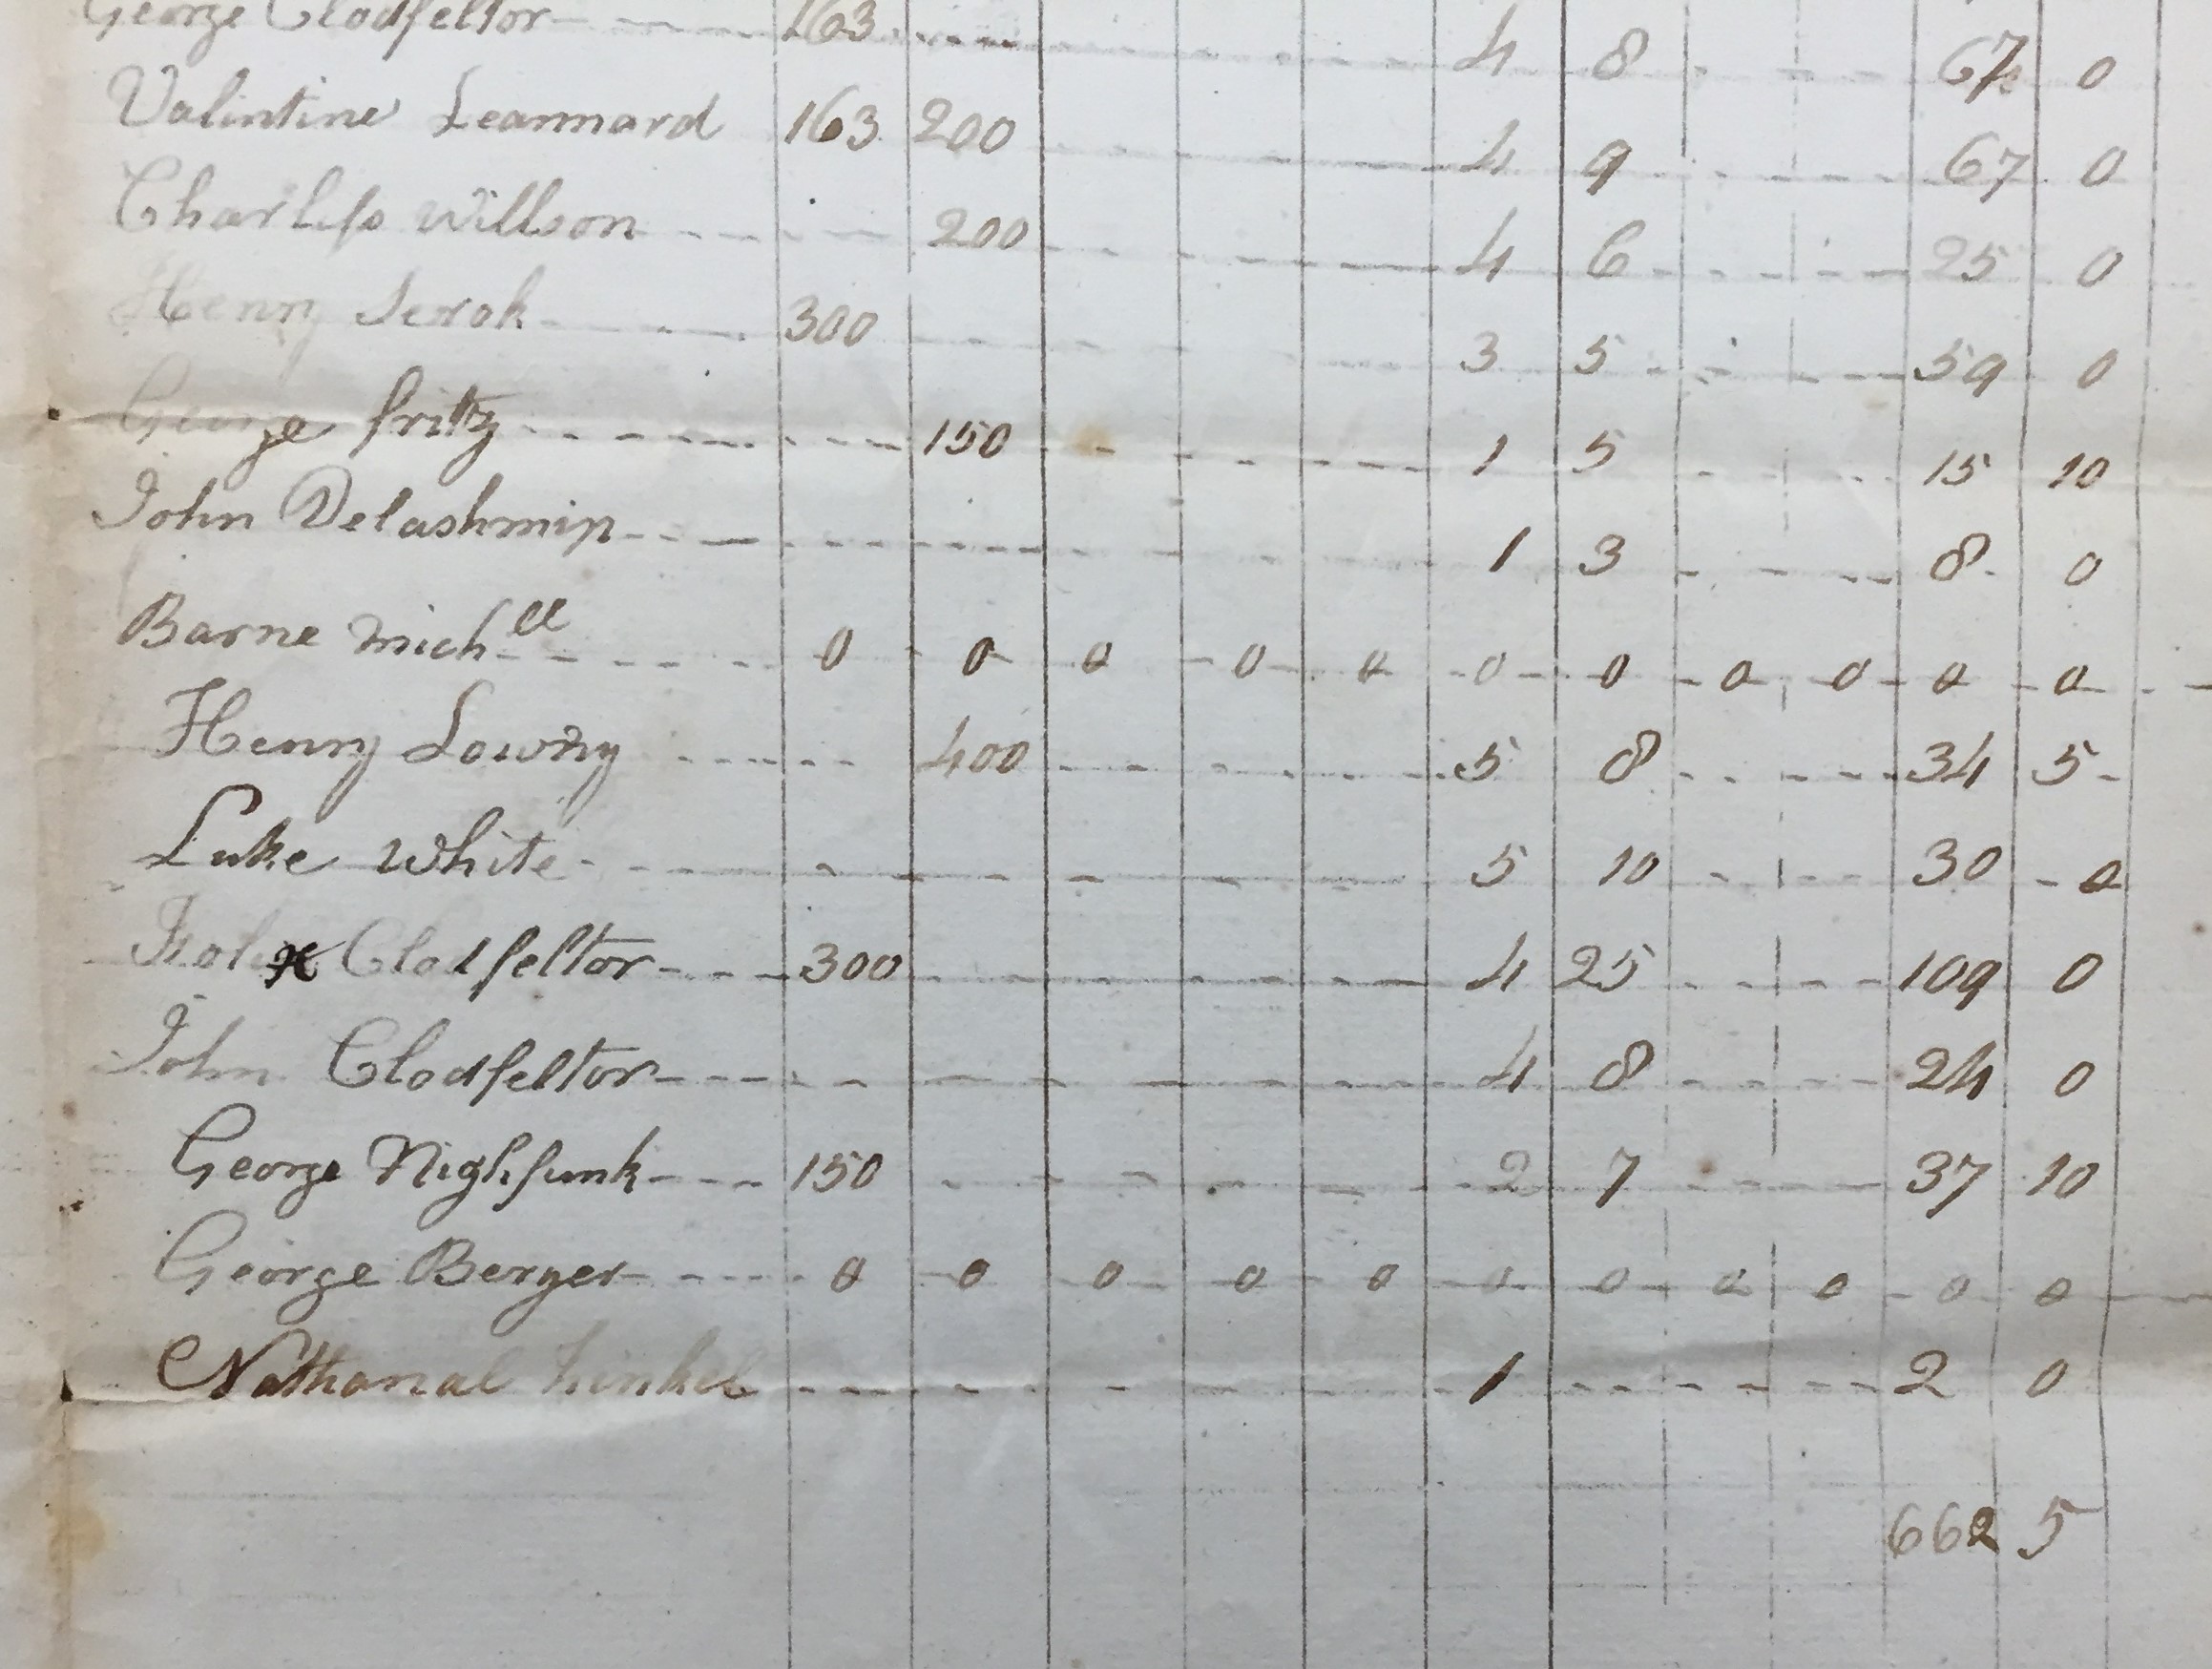 George Clodfeltor 163 4 8 67 0
Valintine Leannard 163 200 4 9 67 0
Charless Willson 200 4 6 25 0
Henry 300 3 5 59 0
George fritz 150 1 5 15 10
John Delashmip 1 3 8 0
Barne Mich ll 0 0 0 0 0 0 0 0 0 0 0
Henry Lowry 400 5 8 34 5
Luke White 5 10 30 0
Clodfeltor 300 4 25 109 0
John Clodfeltor 4 8 24 0
George Nighfunk 150 2 7 37 10
George Berger 0 0 0 0 0 0 0 0 0 0 0
Nathanal hinkel 1 2 0
662 5